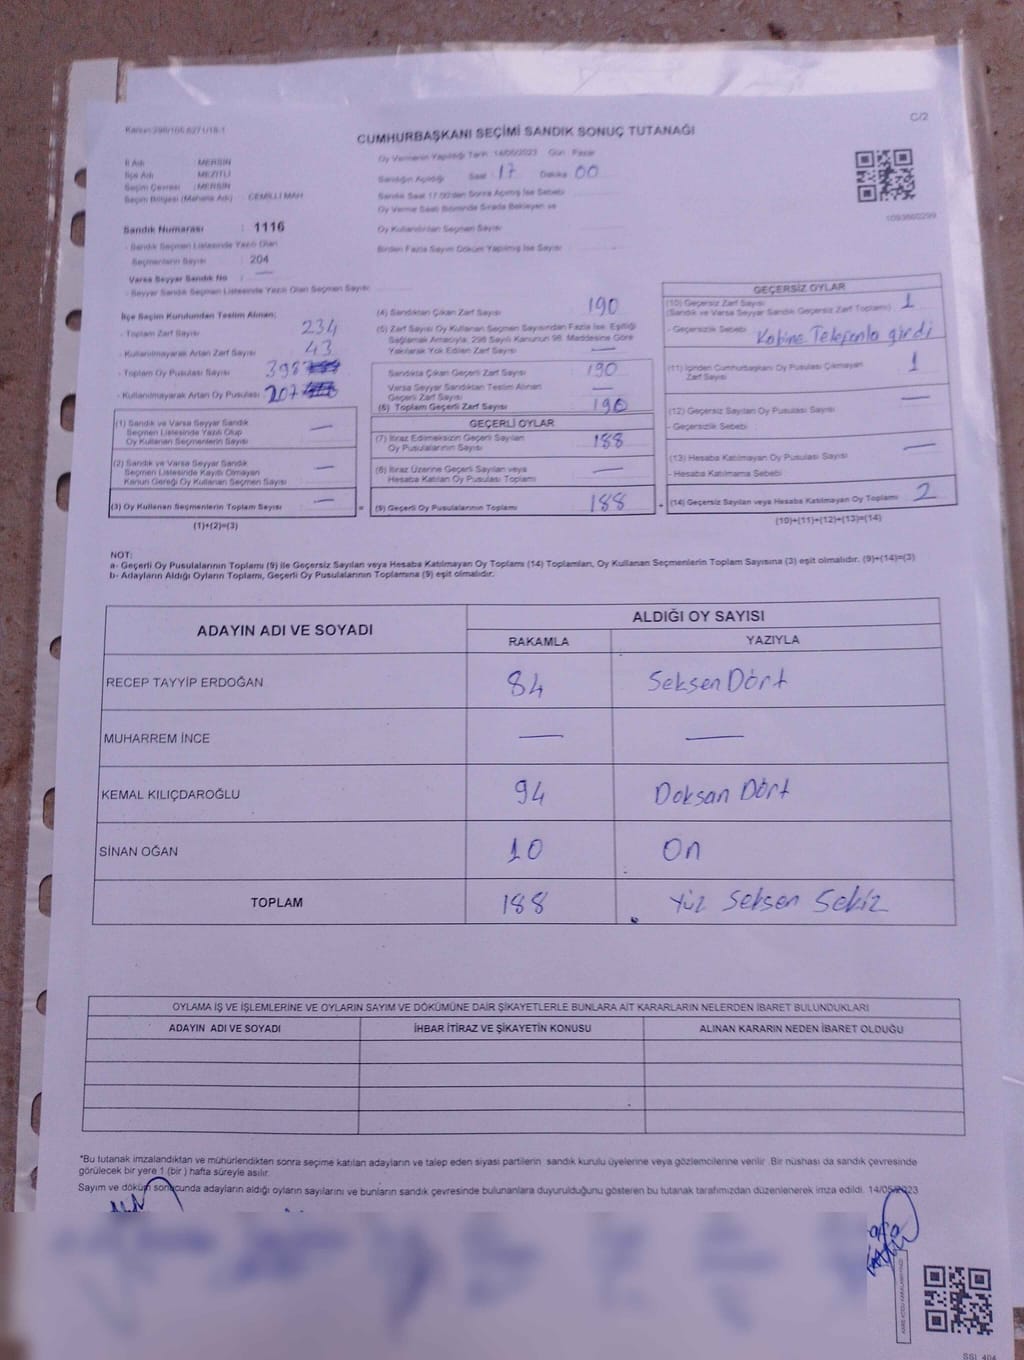 C/2
CUMHURBAŞKANI SEÇİMİ SANDIK SONUÇ TUTANAĞI
Oy Vermenin Yapıldığı Tarih 14/05/2023 Gün : Pazar
Sandığın Açıldığı Saat 17 Dakika 00
Sandık Saat 17.00'den Sonra Açılmış İse Sebebi
Oy Verme Saati Bitiminde Sırada Bekleyen ve
Oy Kullandırılan Seçmen Sayısı
Birden Fazla Sayım Döküm Yapılmış İse Sayısı
1093660299
İl Adı : MERSİN
İlçe Adı : MEZİTLİ
Seçim Çevresi : MERSİN
Seçim Bölgesi (Mahalle Adı) : CEMİLLİ MAH
Sandık Numarası : 1116
- Sandık Seçmen Listesinde Yazılı Olan
Seçmenlerin Sayısı : 204
Varsa Seyyar Sandık No : —
- Seyyar Sandık Seçmen Listesinde Yazılı Olan Seçmen Sayısı:
İlçe Seçim Kurulundan Teslim Alınan;
- Toplam Zarf Sayısı 234
- Kullanılmayarak Artan Zarf Sayısı 43
- Toplam Oy Pusulası Sayısı 398
- Kullanılmayarak Artan Oy Pusulası 207
(1) Sandık ve Varsa Seyyar Sandık
Seçmen Listesinde Yazılı Olup
Oy Kullanan Seçmenlerin Sayısı —
(2) Sandık ve Varsa Seyyar Sandık
Seçmen Listesinde Kayıtlı Olmayan
Kanun Gereği Oy Kullanan Seçmen Sayısı —
(3) Oy Kullanan Seçmenlerin Toplam Sayısı —
(1)+(2)=(3)
(4) Sandıktan Çıkan Zarf Sayısı 190
(5) Zarf Sayısı Oy Kullanan Seçmen Sayısından Fazla İse, Eşitliği
Sağlamak Amacıyla, 298 Sayılı Kanunun 98. Maddesine Göre
Yakılarak Yok Edilen Zarf Sayısı —
Sandıkta Çıkan Geçerli Zarf Sayısı 190
Varsa Seyyar Sandıktan Teslim Alınan
Geçerli Zarf Sayısı —
(6) Toplam Geçerli Zarf Sayısı 190
GEÇERLİ OYLAR
(7) İtiraz Edilmeksizin Geçerli Sayılan
Oy Pusulalarının Sayısı 188
(8) İtiraz Üzerine Geçerli Sayılan veya
Hesaba Katılan Oy Pusulası Toplamı —
= (9) Geçerli Oy Pusulalarının Toplamı 188 +
GEÇERSİZ OYLAR
(10) Geçersiz Zarf Sayısı
(Sandık ve Varsa Seyyar Sandık Geçersiz Zarf Toplamı) 1
- Geçersizlik Sebebi Kabine Telefonla girdi
(11) İçinden Cumhurbaşkanı Oy Pusulası Çıkmayan
Zarf Sayısı 1
(12) Geçersiz Sayılan Oy Pusulası Sayısı —
- Geçersizlik Sebebi
(13) Hesaba Katılmayan Oy Pusulası Sayısı —
- Hesaba Katılmama Sebebi
(14) Geçersiz Sayılan veya Hesaba Katılmayan Oy Toplamı 2
(10)+(11)+(12)+(13)=(14)
NOT:
a- Geçerli Oy Pusulalarının Toplamı (9) ile Geçersiz Sayılan veya Hesaba Katılmayan Oy Toplamı (14) Toplamları, Oy Kullanan Seçmenlerin Toplam Sayısına (3) eşit olmalıdır. (9)+(14)=(3)
b- Adayların Aldığı Oyların Toplamı, Geçerli Oy Pusulalarının Toplamına (9) eşit olmalıdır.
ADAYIN ADI VE SOYADI ALDIĞI OY SAYISI
RAKAMLA YAZIYLA
RECEP TAYYİP ERDOĞAN 84 Seksen Dört
MUHARREM İNCE — —
KEMAL KILIÇDAROĞLU 94 Doksan Dört
SİNAN OĞAN 10 On
TOPLAM 188 Yüz Seksen Sekiz
OYLAMA İŞ VE İŞLEMLERİNE VE OYLARIN SAYIM VE DÖKÜMÜNE DAİR ŞİKAYETLERLE BUNLARA AİT KARARLARIN NELERDEN İBARET BULUNDUKLARI
ADAYIN ADI VE SOYADI İHBAR İTİRAZ VE ŞİKAYETİN KONUSU ALINAN KARARIN NEDEN İBARET OLDUĞU
*Bu tutanak imzalandıktan ve mühürlendikten sonra seçime katılan adayların ve talep eden siyasi partilerin sandık kurulu üyelerine veya gözlemcilerine verilir. Bir nüshası da sandık çevresinde
görülecek bir yere 1 (bir) hafta süreyle asılır.
Sayım ve döküm sonucunda adayların aldığı oyların sayılarını ve bunların sandık çevresinde bulunanlara duyurulduğunu gösteren bu tutanak tarafımızdan düzenlenerek imza edildi. 14/05/2023